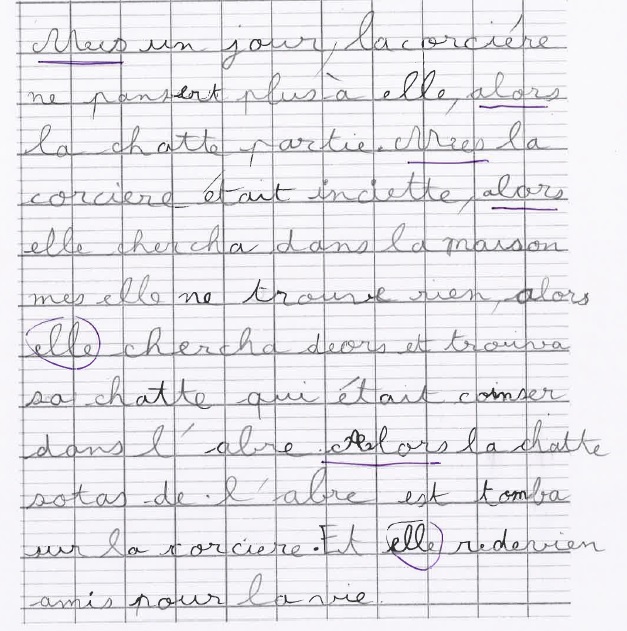 Mes un jour, la corciére
ne pansert plus à elle, alors
la chatte partie. Mes la
corciere était indette, alors
elle chercha dans la maison
mes elle ne trouve rien, alors
elle chercha deors et trouva
sa chatte qui était coinser
dans l'abre. Alors la chatte
sotas de l'abre est tomba
sur la sorciere. Et elle redevien
amis pour la vie.